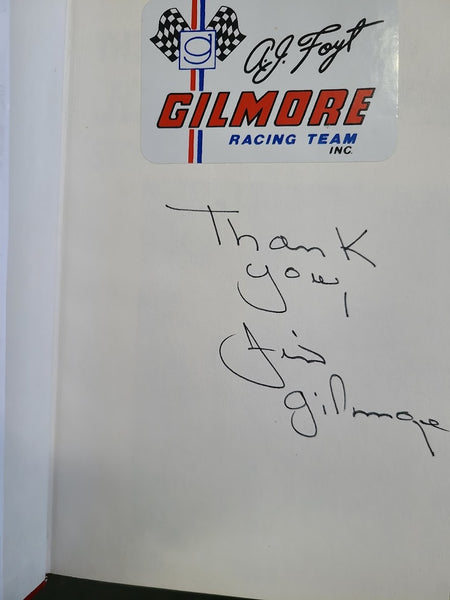 g
A.J. Foyt
GILMORE
RACING TEAM
INC.
Thank
you,
Jim
Gilmore